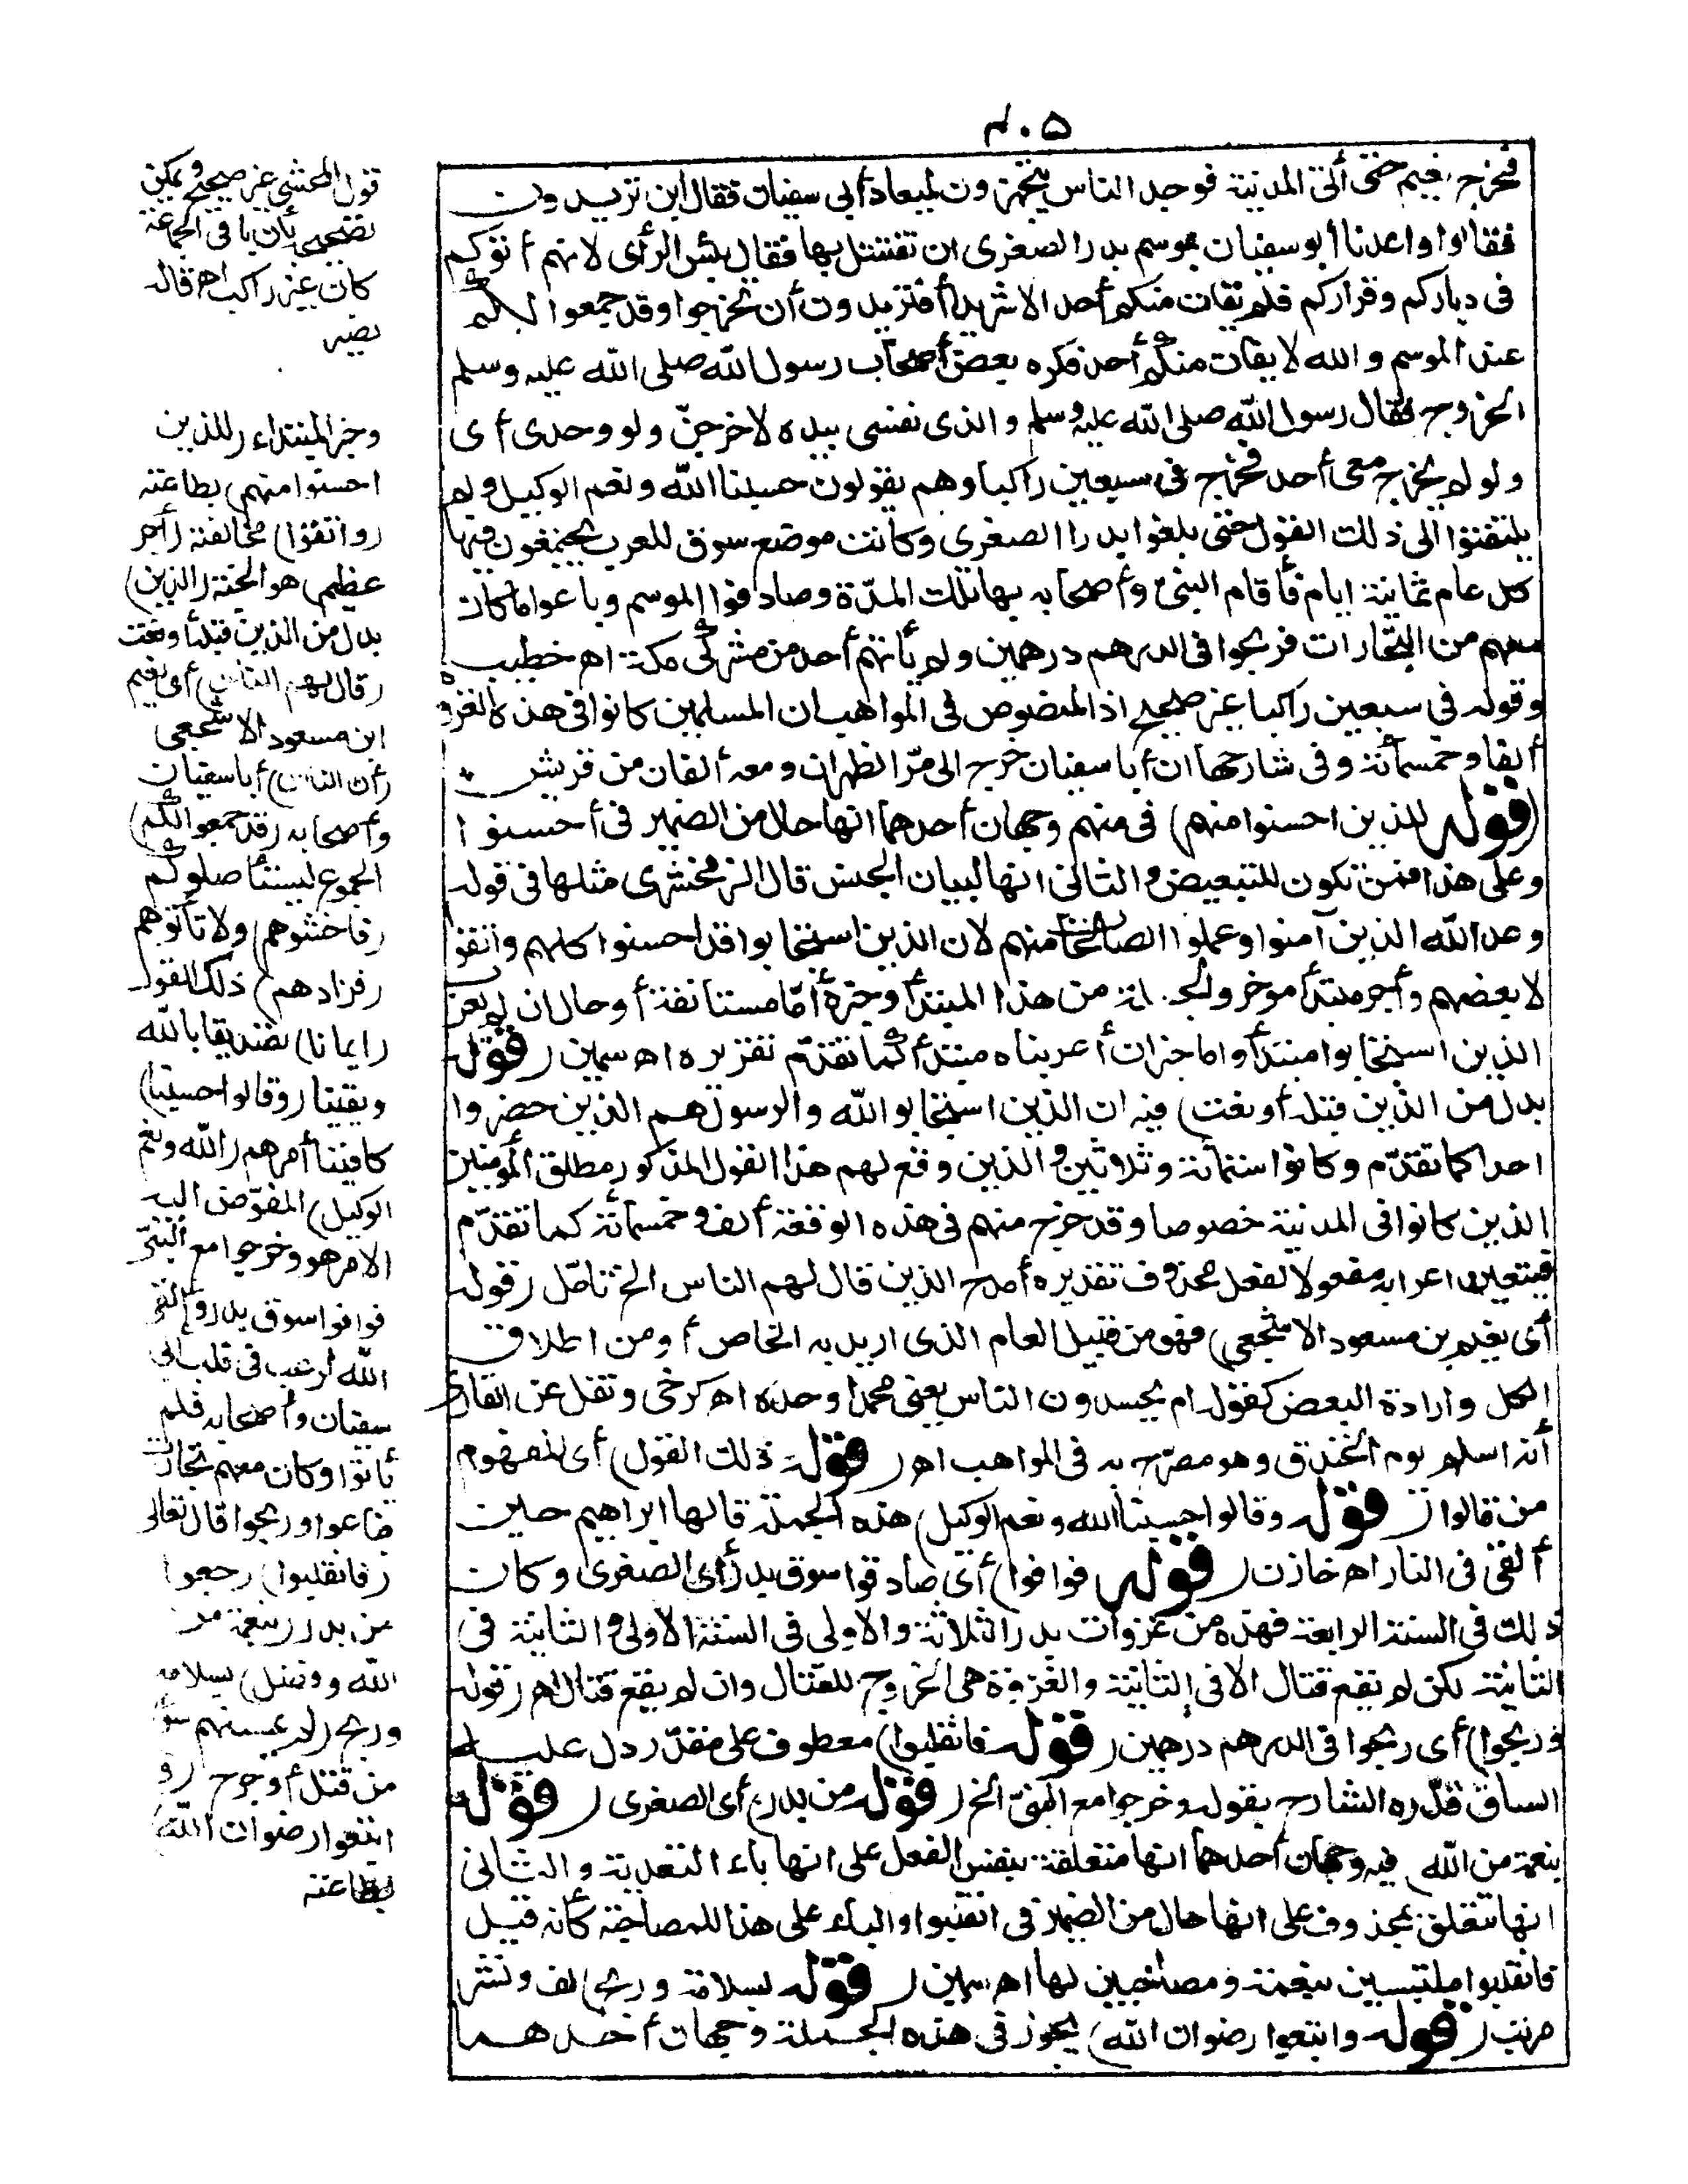 ٤٠٥
فخرج نعيم حتى أتى المدينة فوجد الناس يتجهزون لميعاد أبي سفيان فقال اين تريدون
فقالوا واعدنا أبو سفيان بموسم بدر الصغرى ان نقتتل بها فقال بئس الرأى لانهم أتوكم
فى دياركم وقراركم فلم يفلت منكم أحد الا شريدا أفتريدون أن تخرجوا وقد جمعوا لكم
عند الموسم والله لا يفلت منكم أحد فكره بعض أصحاب رسول الله صلى الله عليه وسلم
الخروج فقال رسول الله صلى الله عليه وسلم والذى نفسى بيده لاخرجنّ ولو وحدى أى
ولو لم يخرج معى أحد فخرج فى سبعين راكبا وهم يقولون حسبنا الله ونعم الوكيل ولم
يلتفتوا الى ذلك القول حتى بلغوا بدرا الصغرى وكانت موضع سوق للعرب يجتمعون فيها
كل عام ثمانية ايام فأقام النبىّ وأصحابه بها تلك المدّة وصادفوا الموسم وباعوا ما كان
معهم من التجارات فربحوا فى الدرهم درهمين ولم يأتهم أحد من مشركى مكة اهـ خطيب
وقوله فى سبعين راكبا غير صحيح اذ المنصوص فى المواهب ان المسلمين كانوا فى هذه الغزوة
ألفا وخمسمائة وفى شارحها ان أبا سفيان خرج الى مرّ الظهران ومعه ألفان من قريش
(قوله للذين احسنوا منهم) فى منهم وجهان أحدهما انها حال من الضمير فى أحسنوا
وعلى هذا فمن تكون للتبعيض والثانى انها لبيان الجنس قال الزمخشرى مثلها فى قوله
وعد الله الذين آمنوا وعملوا الصالحات منهم لان الذين استجابوا قد احسنوا كلهم واتقوا
لا بعضهم وأجر مبتدأ مؤخر والجملة من هذا المبتدأ وخبره أمّا مستأنفة أو حال ان لم يعرب
الذين استجابوا مبتدأ واما خبر ان أعربناه مبتدأ كما تقدّم تقريره اهـ سمين (قوله
بدل من الذين قبله أو نعت) فيه ان الذين استجابوا لله والرسول هم الذين حضروا
احدا كما تقدّم وكانوا ستمائة وثلاثين والذين وقع لهم هذا القول المذكور مطلق المؤمنين
الذين كانوا فى المدينة خصوصا وقد خرج منهم فى هذه الوقعة ألف وخمسمائة كما تقدّم
فيتعين اعرابه مفعولا لفعل محذوف تقديره أمدح الذين قال لهم الناس الخ تأمّل (قوله
أى نعيم بن مسعود الاشجعى) فهو من قبيل العام الذى اريد به الخاص أو من اطلاق
الكل وارادة البعض كقوله ام يحسدون الناس يعنى محمدا وحده اهـ كرخى ونقل عن القارى
أنه اسلم يوم الخندق وهو مصرّح به فى المواهب اهـ (قوله ذلك القول) أى المفهوم
من قالوا (قوله وقالوا حسبنا الله ونعم الوكيل) هذه الجملة قالها ابراهيم حين
ألقى فى النار اهـ خازن (قوله فوافوا) أى صادفوا سوق بدر أى الصغرى وكان
ذلك فى السنة الرابعة فهذه من غزوات بدر الثلاثة والاولى فى السنة الاولى والثانية فى
الثانية لكن لم يقع قتال الا فى الثانية والغزوة هى الخروج للقتال وان لم يقع قتال اهـ (قوله
وربحوا) أى ربحوا فى الدرهم درهمين (قوله فانقلبوا) معطوف على مقدّر دل عليه
السياق قدّره الشارح بقوله وخرجوا مع النبىّ الخ (قوله من بدر) أى الصغرى (قوله
بنعمة من الله) فيه وجهان أحدهما انها متعلقة بنفس الفعل على انها باء التعدية والثانى
انها تتعلق بمحذوف على انها حال من الضمير فى انقلبوا والباء على هذا للمصاحبة كأنه قيل
فانقلبوا ملتبسين بنعمة ومصاحبين لها اهـ سمين (قوله بسلامة وربح) لف ونشر
مرتب (قوله واتبعوا رضوان الله) يجوز فى هذه الجملة وجهان أحدهما
قول المحشى غير صحيح ويمكن
تصحيحه بأن باقى الجماعة
كان غير راكب اهـ قاله
نصير
وخبر المبتداء (للذين
احسنوا منهم) بطاعته
(واتقوا) مخالفته (أجر
عظيم) هو الجنة (الذين)
بدل من الذين قبله أو نعت
(قال لهم الناس) أى نعيم
ابن مسعود الاشجعى
(أن الناس) أبا سفيان
وأصحابه (قد جمعوا لكم)
الجموع ليستأصلوكم
(فاخشوهم) ولا تأتوهم
(فزادهم) ذلك القول
(ايمانا) تصديقا بالله
ويقينا (وقالوا حسبنا)
كافينا أمرهم (الله ونعم
الوكيل) المفوّض اليه
الامر هو وخرجوا مع النبىّ
فوافوا سوق بدر وألقى
الله الرعب فى قلب أبى
سفيان وأصحابه فلم
يأتوا وكان معهم تجارات
فباعوا وربحوا قال تعالى
(فانقلبوا) رجعوا
من بدر (بنعمة من
الله وفضل) بسلامة
وربح (لم يمسسهم سوء)
من قتل أو جرح (و
اتبعوا رضوان الله)
بطاعته